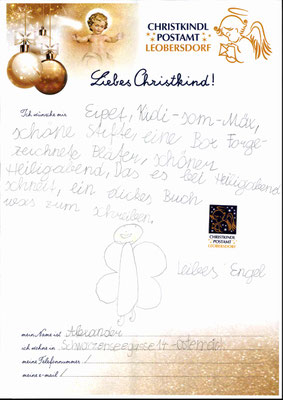 CHRISTKINDL
POSTAMT
LEOBERSDORF
Liebes Christkind!
Ich wünsche mir Eipet, Kudi-som-Max,
schöne Stifte, eine Box Forge-
zeichnete Bläter, schönen
Heiligabend, Das es bei Heiligabend
schneit, ein dickes Buch
was zum schreiben.
CHRISTKINDL
POSTAMT
LEOBERSDORF
Liebes Engel
mein Name ist Alexander
ich wohne in
meine Telefonnummer /
meine e-mail /